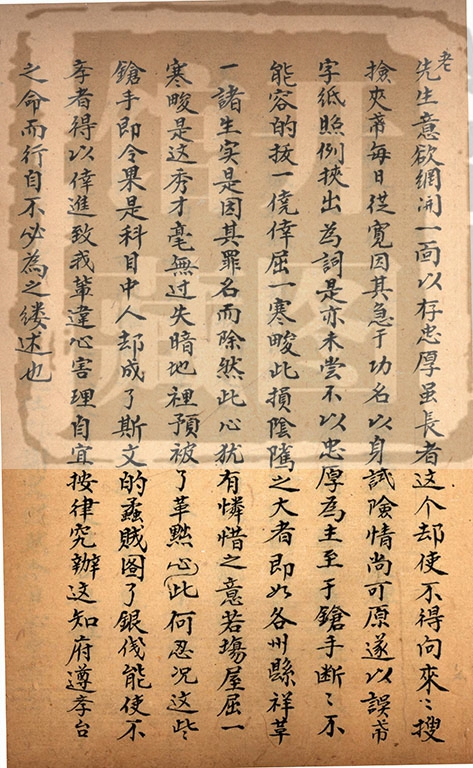 老先生意欲網開一面以存忠厚虽長者这个却使不得向來〻搜
撿夾帶每日從寬因其急于功名以身試險情尚可原遂以誤帶
字紙照例挾出為詞是亦未嘗不以忠厚為主至于鎗手断〻不
能容的拔一僥倖屈一寒畯此損陰隲之大者即如各州縣祥革
一諸生实是因其罪名而除然此心犹有憐惜之意若塲屋屈一
寒畯是这秀才毫無过失暗地裡預被了革黜心此何忍况这些
鎗手即令果是科目中人却成了斯文的蟊賊图了銀伐能使不
孝者得以倖進致我輩違心害理自宜按律究辦這知府遵孝台
之命而行自不必為之缕述也
開
图
館
藏